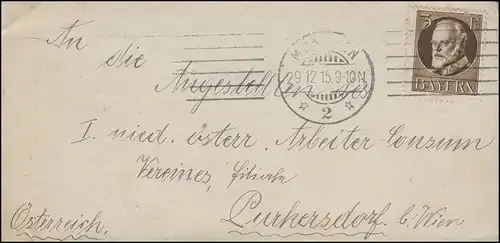 An die
Angestellten des
I. nied. österr. Arbeiter Consum
Vereines, filiale
Purkersdorf b. Wien
Österreich.
29.12.15.9-10N.
2
3
BAYERN